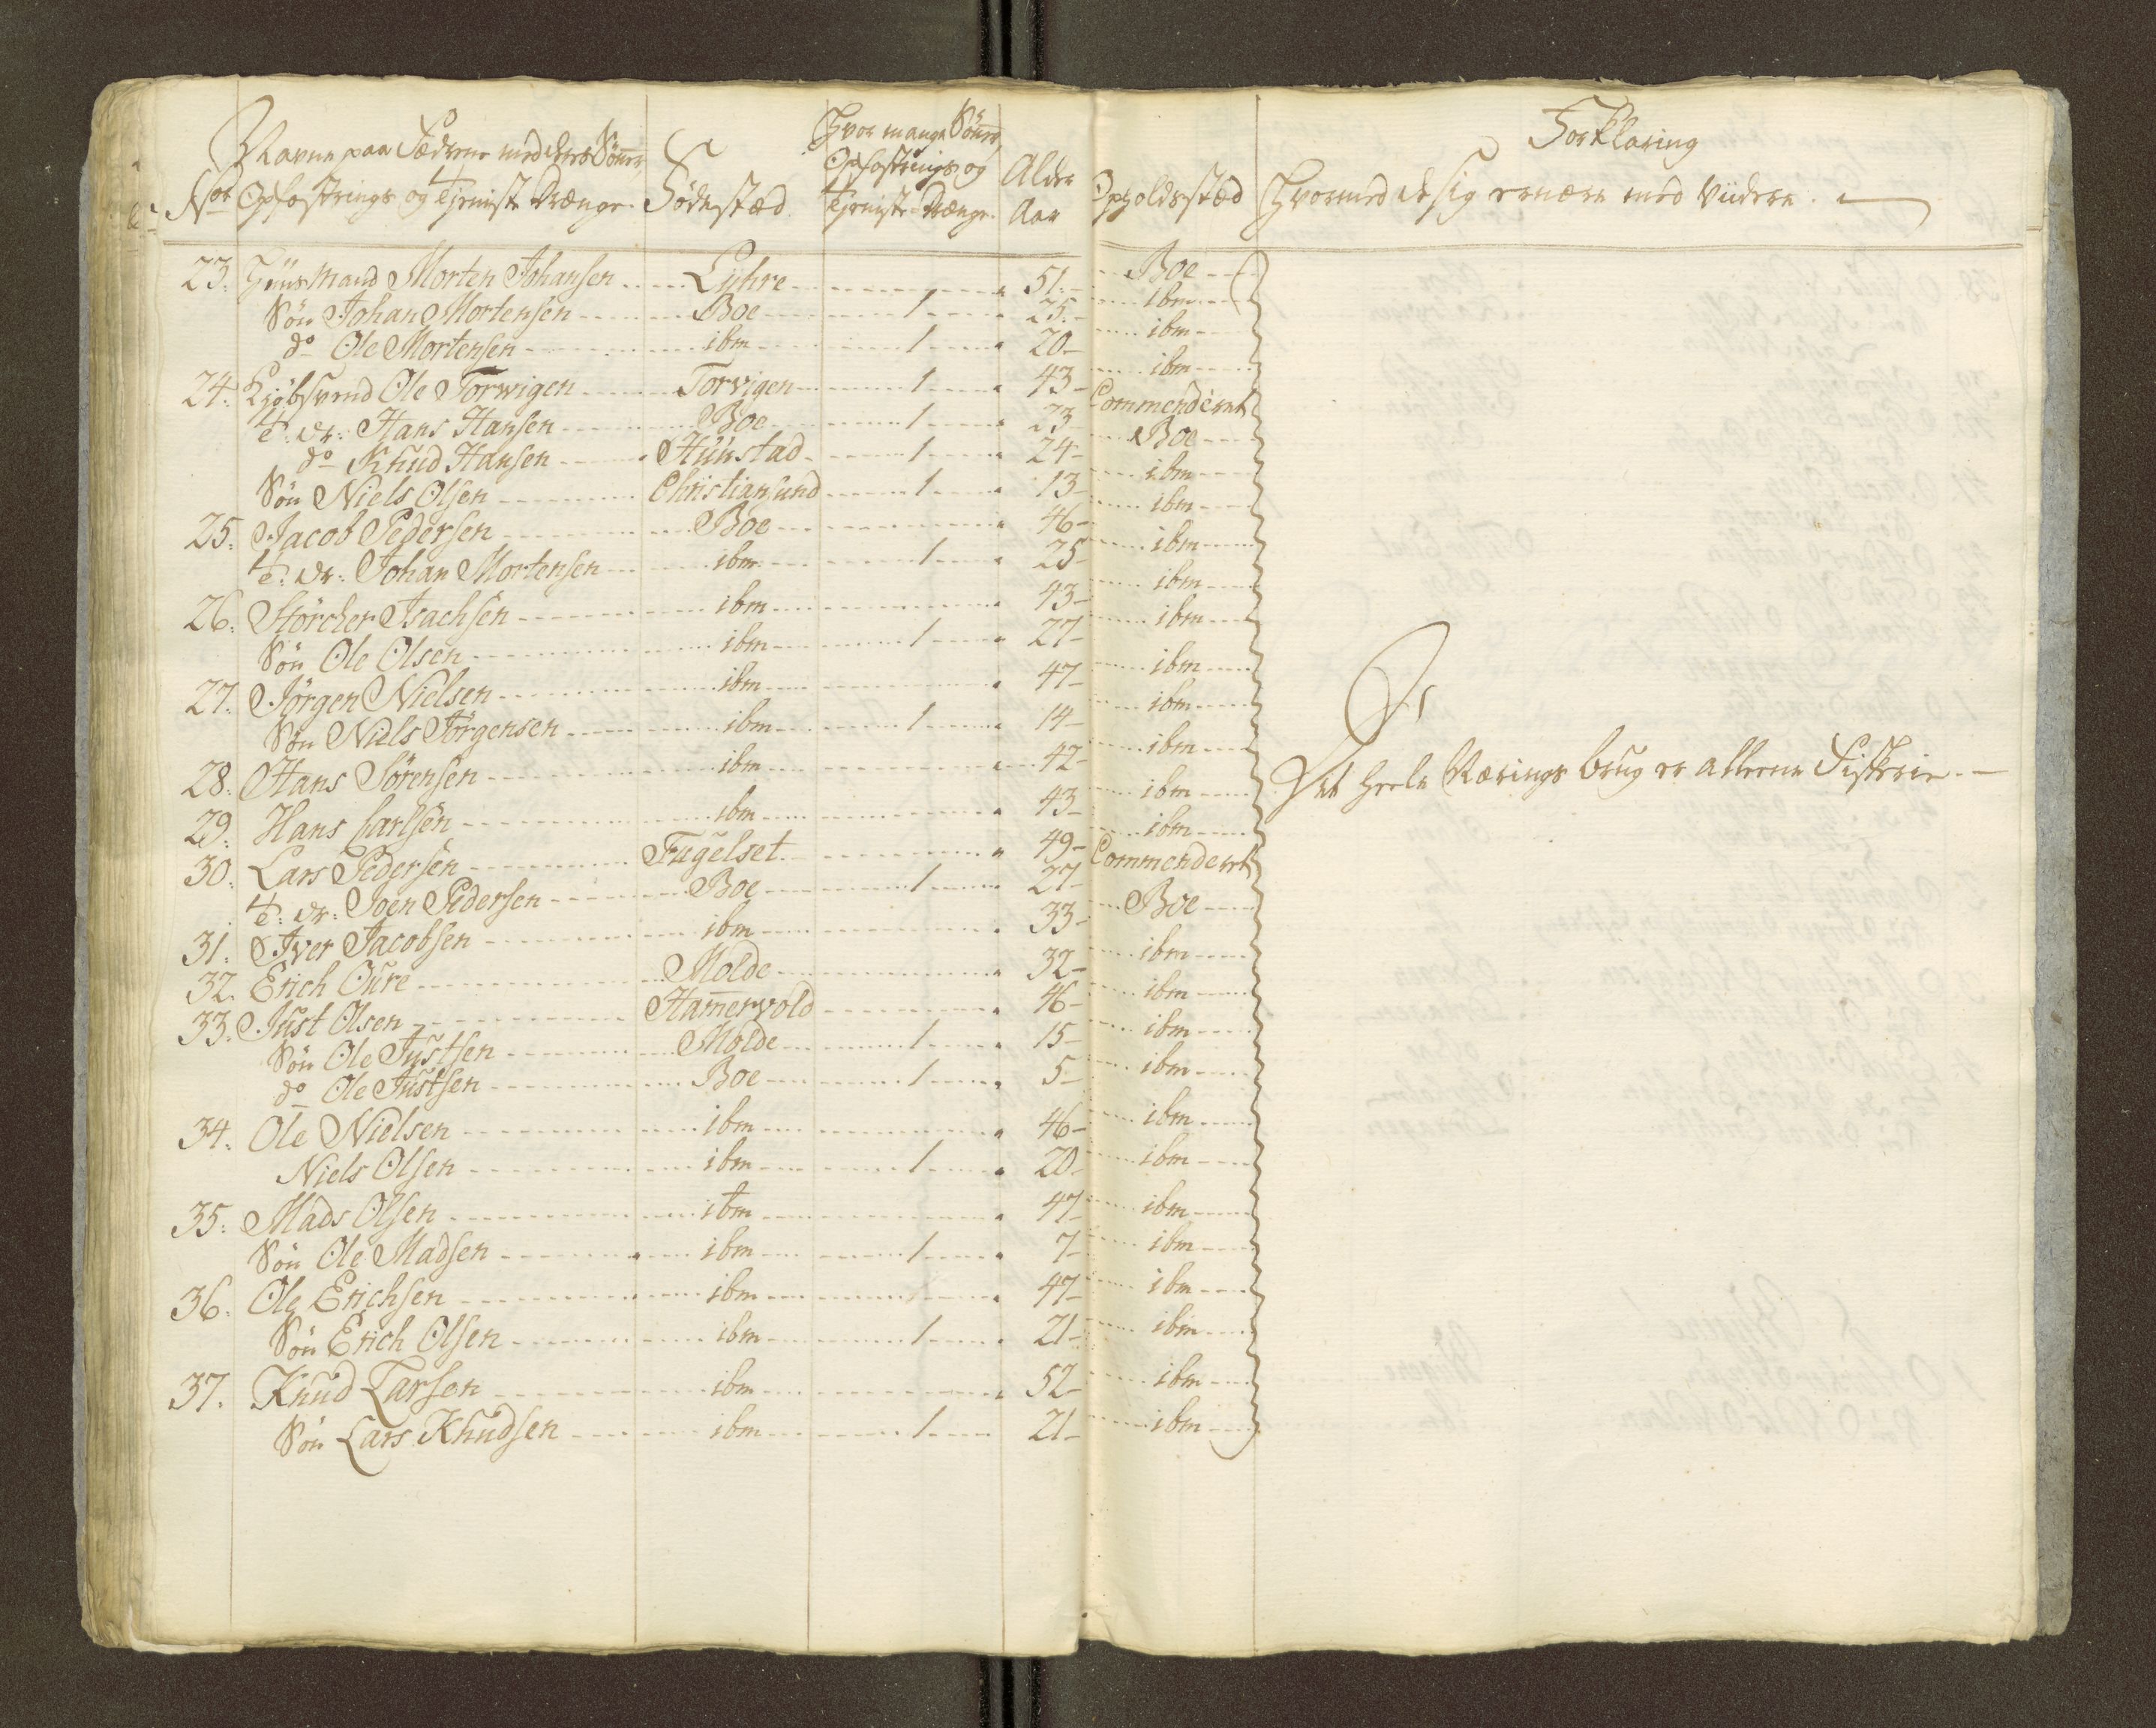 Navne paa Fædrene med deres Sönner,
Opfostrings og Tjeniste Drænge.
No
Födestæd
Hvor mange Sönner,
Opfostrings og
Tjeniste-Drænge.
Alder
Aar
Opholdstæd
Forklaring
Hvormed de sig ernære med Viidere.
23. Huusmand Morten Johansen Lyhre 51. Boe
Sön Johan Mortensen Boe 1 25. ibm
do Ole Mortensen ibm 1 20 ibm
24. Kjöbsvend Ole Torwigen Torvigen 1 43 ibm
T: Dr: Hans Hansen Boe 1 23 Commenderet
do Knud Hansen Hunstad 1 24 Boe
Sön Niels Olsen Christiansund 1 13 ibm
25. Jacob Pedersen Boe 46 ibm
T: Dr: Johan Mortensen ibm 1 25 ibm
26. Störcher Isachsen ibm 43 ibm
Sön Ole Olsen ibm 1 27 ibm
27. Jörgen Nielsen ibm 47 ibm
Sön Niels Jörgensen ibm 1 14 ibm
28. Hans Sörensen ibm 42 ibm
29. Hans Carlsen ibm 43 ibm
30. Lars Pedersen Fugelset 49 ibm
T: Dr: Joen Pedersen Boe 1 27 Commenderet
31. Iver Jacobsen ibm 33 Boe
32. Erich Oure Molde 32 ibm
33. Just Olsen Hamervold 46 ibm
Sön Ole Justsen Molde 1 15 ibm
do Ole Justsen Boe 1 5 ibm
34. Ole Nielsen ibm 46 ibm
Niels Olsen ibm 1 20 ibm
35. Mads Olsen ibm 47 ibm
Sön Ole Madsen ibm 1 7 ibm
36. Ole Erichsen ibm 47 ibm
Sön Erich Olsen ibm 1 21 ibm
37. Knud Larsen ibm 52 ibm
Sön Lars Knudsen ibm 1 21 ibm
Det heele Nærings brug er alleene Fiskerie.